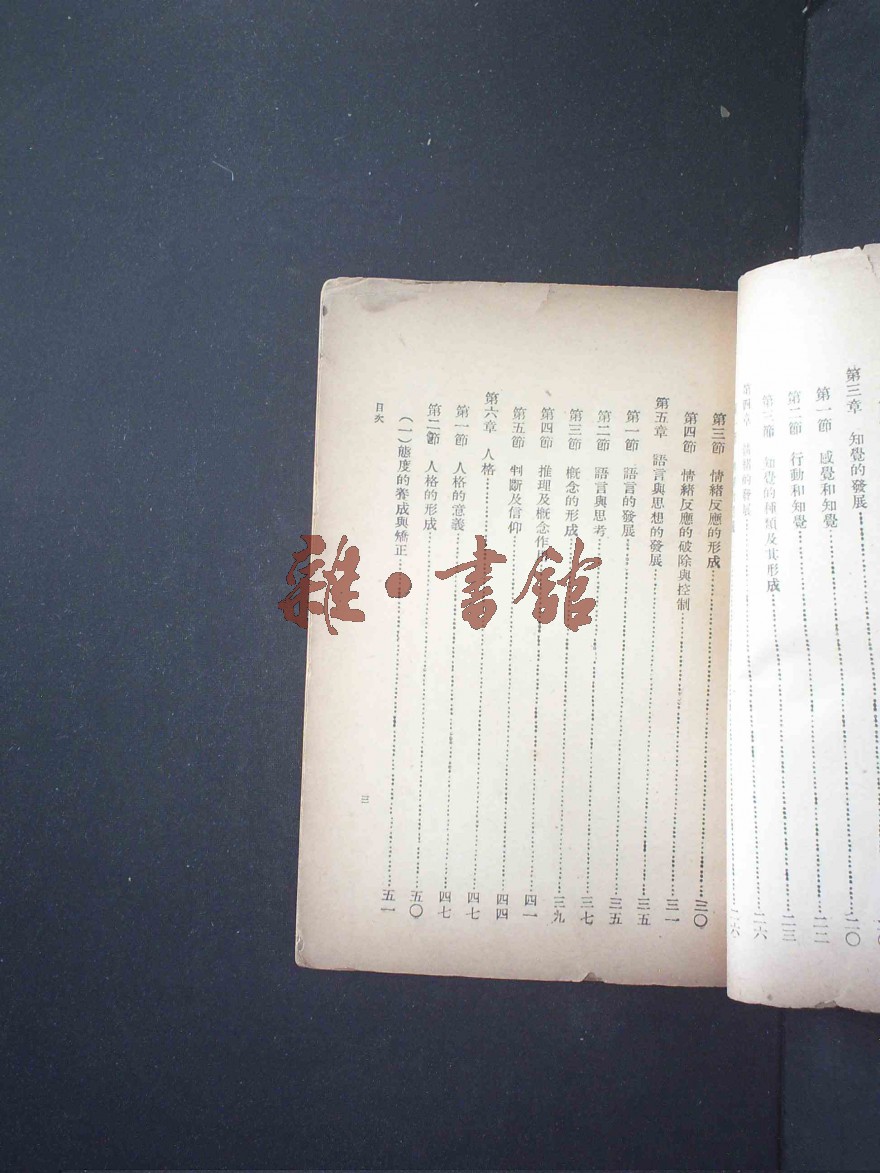 第三章　知覺的發展……二〇
第一節　感覺和知覺……二二
第二節　行動和知覺……二三
第三節　知覺的種類及其形成……二六
第四章　情緒的發展……二六
第三節　情緒反應的形成……三〇
第四節　情緒反應的破除與控制……三一
第五章　語言與思想的發展……三五
第一節　語言的發展……三五
第二節　語言與思考……三七
第三節　概念的形成……三九
第四節　推理及概念作用……四一
第五節　判斷及信仰……四四
第六章　人格……四七
第一節　人格的意義……四七
第二節　人格的形成……五〇
（一）態度的養成與矯正……五一
目次
三
雜·書館